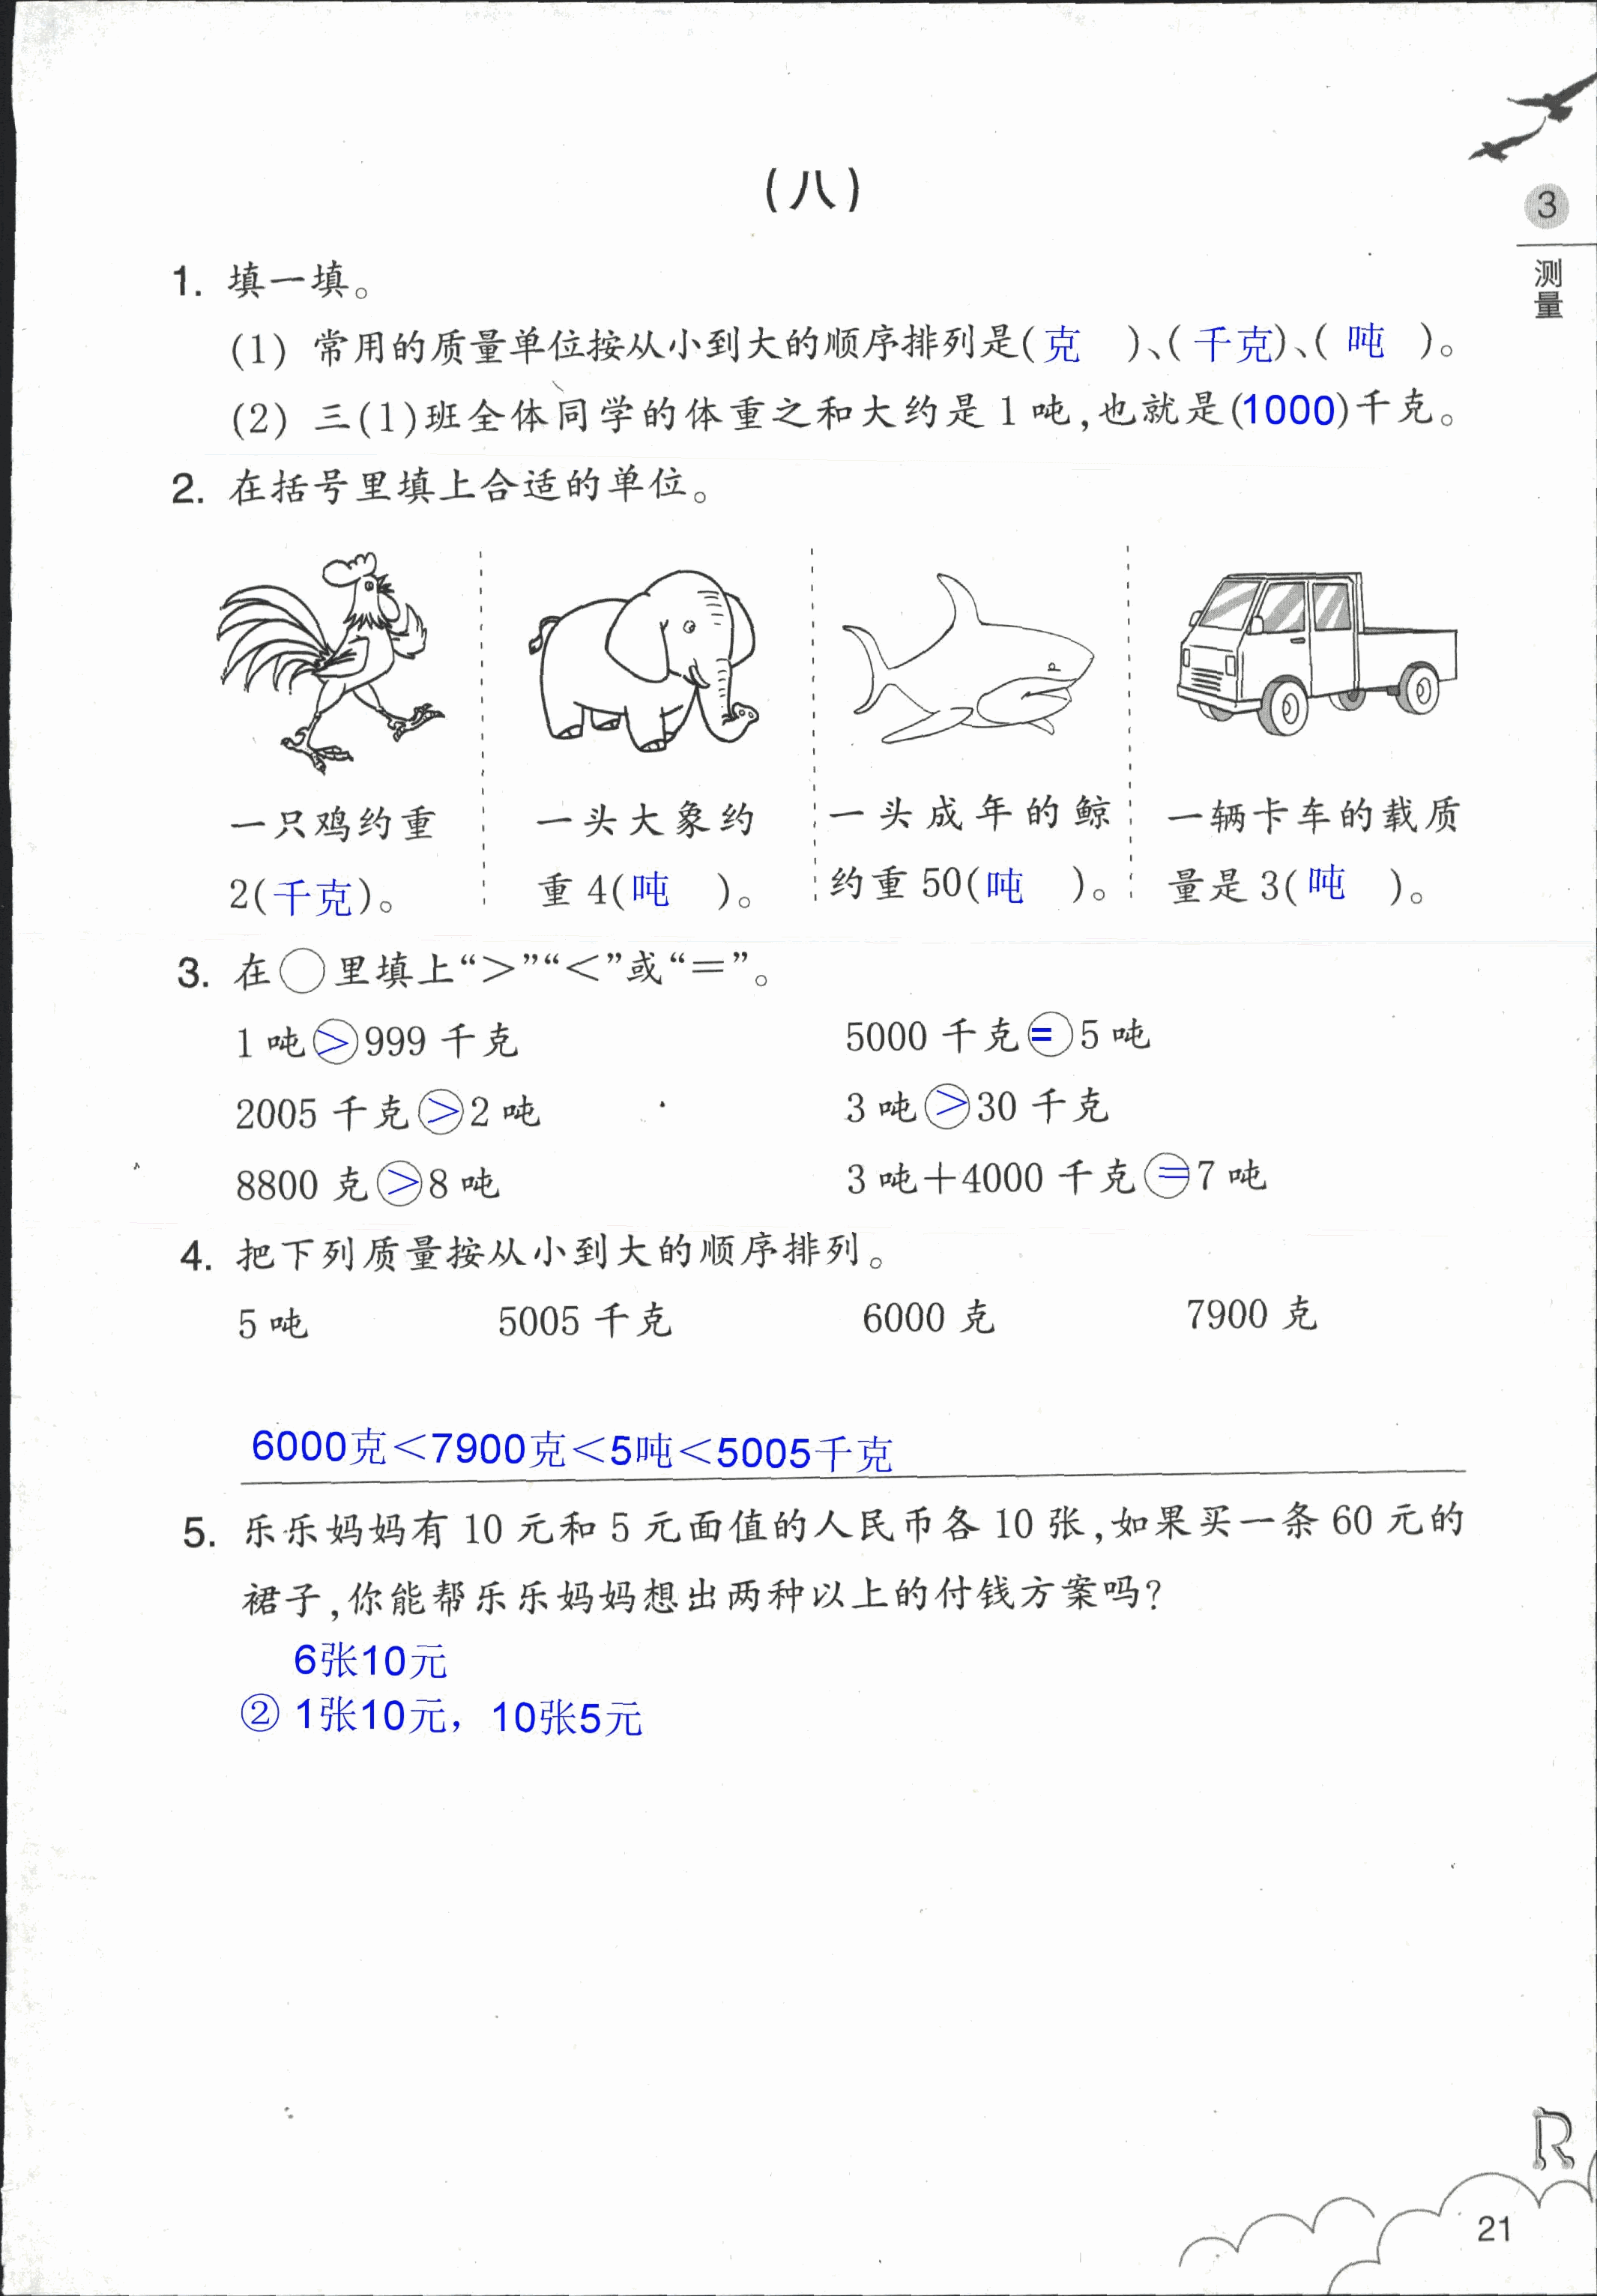 (八)
3
测量
1. 填一填。
(1) 常用的质量单位按从小到大的顺序排列是(克 )、(千克)、( 吨 )。
(2) 三(1)班全体同学的体重之和大约是1吨,也就是(1000)千克。
2. 在括号里填上合适的单位。
一只鸡约重
2(千克)。
一头大象约
重4(吨 )。
一头成年的鲸
约重50(吨 )。
一辆卡车的载质
量是3(吨 )。
3. 在○里填上“>”“<”或“=”。
1吨>999千克 5000千克=5吨
2005千克>2吨 3吨>30千克
8800克>8吨 3吨+4000千克=7吨
4. 把下列质量按从小到大的顺序排列。
5吨 5005千克 6000克 7900克
6000克<7900克<5吨<5005千克
5. 乐乐妈妈有10元和5元面值的人民币各10张,如果买一条60元的
裙子,你能帮乐乐妈妈想出两种以上的付钱方案吗?
6张10元
② 1张10元，10张5元
R
21